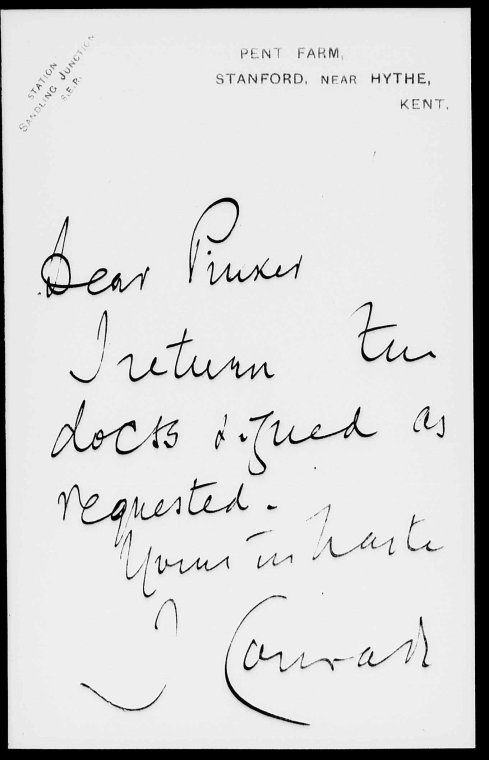 STATION
SANDLING JUNCTION
S.E.R.
PENT FARM,
STANFORD, NEAR HYTHE,
KENT.
Dear Pinker
I return the
docts signed as
requested.
Yours in haste
J Conrad